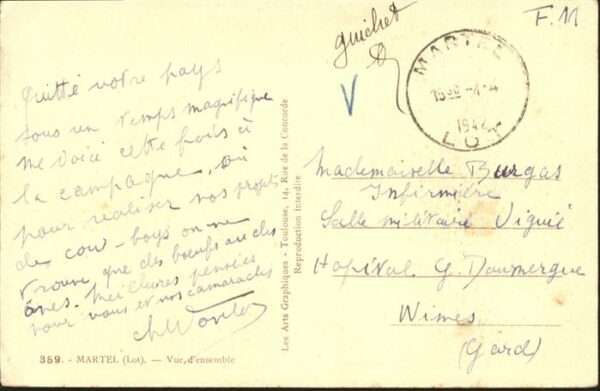 guichet
F.M
MARTEL
1530 -4-4
1942
LOT
V
Quitté votre pays
sous un temps magnifique
me voici cette fois à
la campagne, où
pour réaliser nos projets
de cow-boys on ne
trouve que des boeufs ou des
ânes. Meilleures pensées
pour vous et vos camarades
Mademoiselle Burgas
Infirmière
Salle militaire Viguié
Hopital G. Doumergue
Nimes
(Gard)
Les Arts Graphiques - Toulouse, 14, Rue de la Concorde
Reproduction Interdite
359. - MARTEL (Lot). — Vue d'ensemble